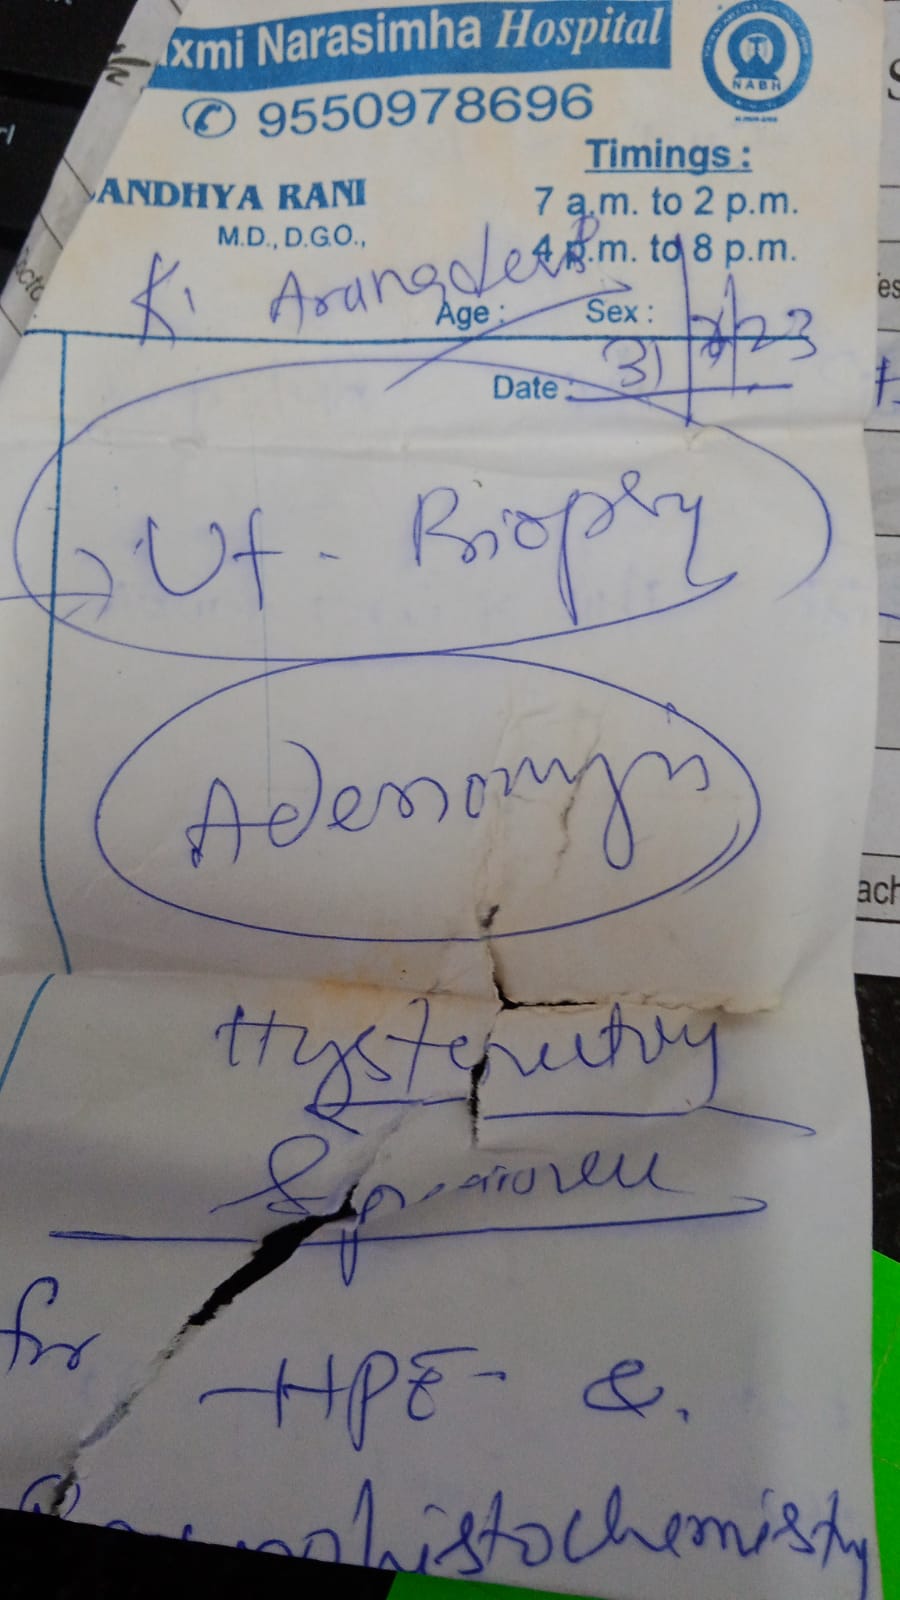 xmi Narasimha Hospital
NABH
9550978696
Timings :
ANDHYA RANI
7 a.m. to 2 p.m.
M.D., D.G.O.,
4 p.m. to 8 p.m.
K.
Age : Sex :
Date : 31/ /23
Ut - Biopsy
Adenomysis
Hysterectomy
for
HPE - &
histochemistry
ach